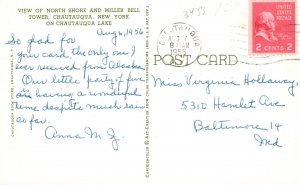 VIEW OF NORTH SHORE AND MILLER BELL
TOWER, CHAUTAUQUA, NEW YORK
ON CHAUTAUQUA LAKE
Aug 6, 1956
So glad for
your card, the only one I
ever received from Alaska.
Our little party of five
are having a wonderful
time despite much rain
so far.
Anna M. J.
CHAUTAUQUA
AUG 7
8 AM
1956
2 CENTS 2
POST CARD
Miss Virginia Holloway,
5310 Hamlet Ave
Baltimore 14
Md